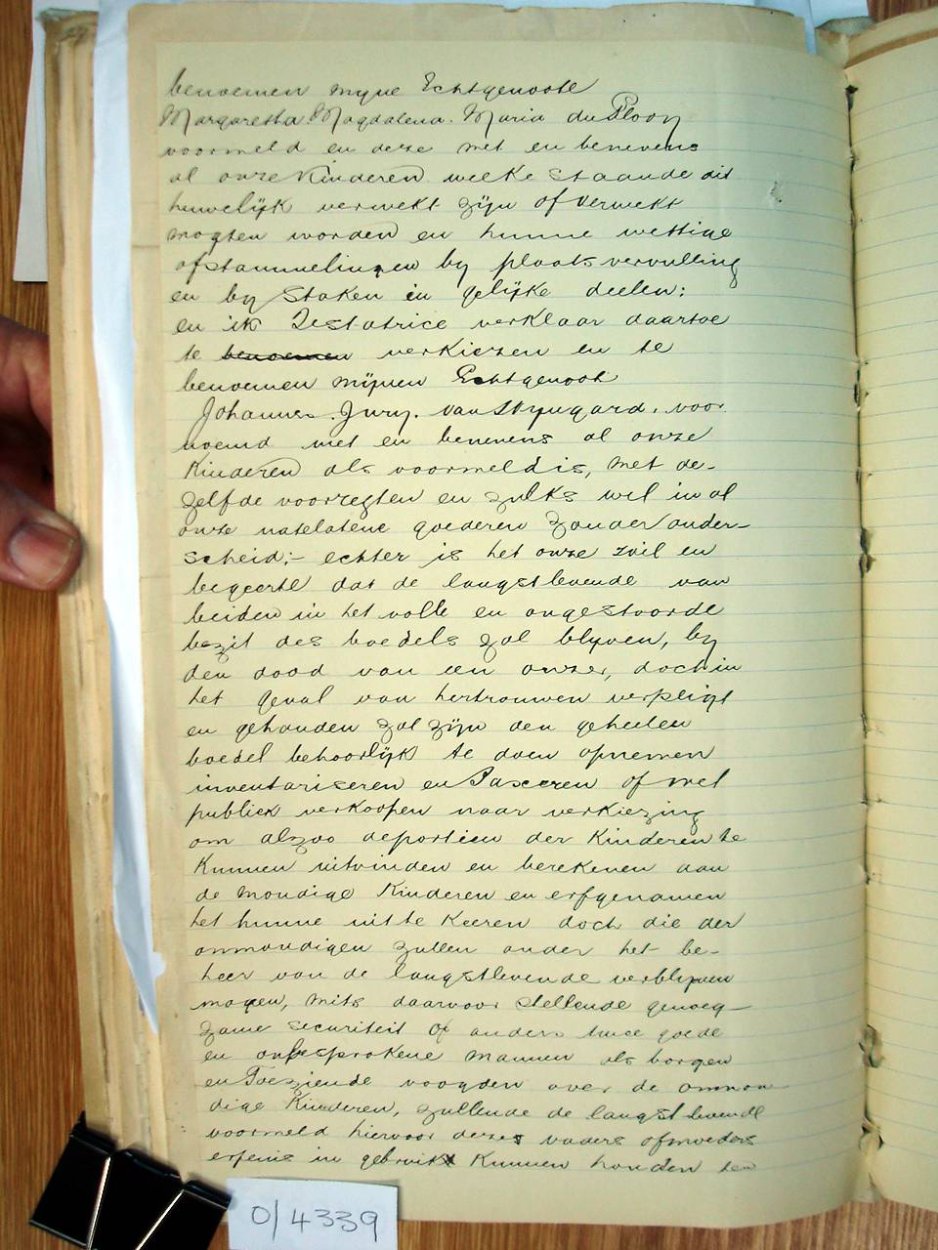 benoemen myne Echtgenoote
Margaretha Magdalena Maria du Plooy
voormeld en deze met en benevens
al onze Kinderen welke staande dit
huwelijk verwekt zijn of verwekt
mogten worden en hunne wettige
afstammelingen by plaatsvervulling
en by Staken in gelijke deelen:
en ik Testatrice verklaar daartoe
te benoemen verkiezen en te
benoemen mijnen Echtgenoot
Johannes Jury van Wyngard, voor
noemd met en benevens al onze
Kinderen als voormeld is, met de-
zelfde voorregten en zulks wel in al
onze natelatene goederen zonder onder-
scheid;- echter is het onze wil en
begeerte dat de langstlevende van
beiden in het volle en ongestoorde
bezit des boedels zal blyven, by
den dood van een onzer, doch in
het geval van hertrouwen verpligt
en gehouden zal zijn den geheelen
boedel behoorlijk te doen opnemen
inventariseren en Taxeren of wel
publiek verkoopen naar verkiezing
om alzoo deportien der Kinderen te
Kunnen uitvinden en berekenen aan
de mondige Kinderen en erfgenamen
het hunne uit te Keeren doch die der
onmondigen zullen onder het be-
heer van de langstlevende verblyven
mogen, mits daarvoor stellende genoeg-
zame securiteit of anders twee goede
en onbesprokene mannen als borgen
en Toeziende voogden over de onmon
dige Kinderen, zullende de langstlevende
voormeld hiervoor dezes vaders of moeders
erfenis in gebruik Kunnen houden ten
0/4339